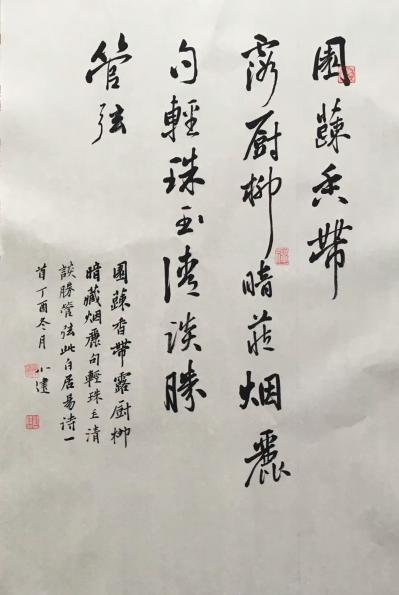 園蔬香帶
露厨柳暗藏烟麗
句輕珠玉清談勝
管弦
園蔬香帶露厨柳
暗藏烟麗句輕珠玉清
談勝管弦此白居易诗一
首丁酉冬月 小